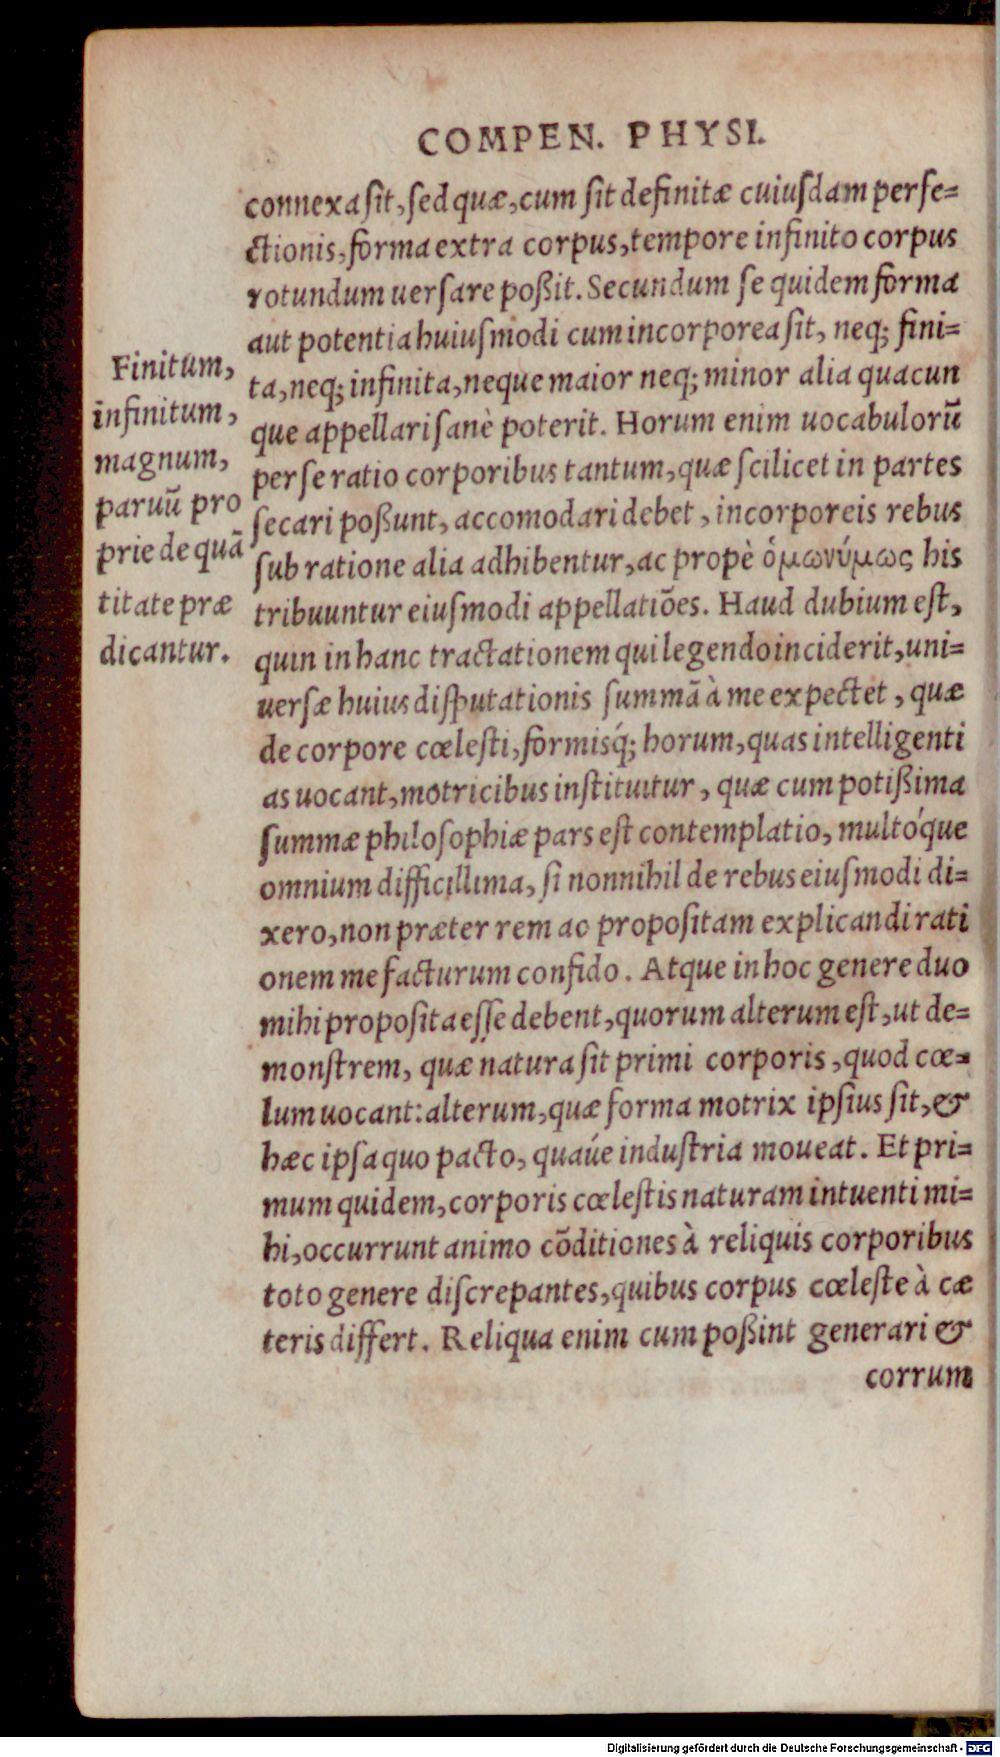 COMPEN. PHYSI.
connexa sit, sed quæ, cum sit definitæ cuiusdam perfe=
ctionis, forma extra corpus, tempore infinito corpus
rotundum uersare poßit. Secundum se quidem forma
aut potentia huiusmodi cum incorporea sit, neq; fini=
ta, neq; infinita, neque maior neq; minor alia quacun
que appellari sanè poterit. Horum enim uocabulorū
per se ratio corporibus tantum, quæ scilicet in partes
secari poßunt, accomodari debet, incorporeis rebus
sub ratione alia adhibentur, ac propè ὁμωνύμως his
tribuuntur eiusmodi appellatiōes. Haud dubium est,
quin in hanc tractationem qui legendo inciderit, uni=
uersæ huius disputationis summā à me expectet, quæ
de corpore cœlesti, formisq́; horum, quas intelligenti
as uocant, motricibus instituitur, quæ cum potißima
summæ philosophiæ pars est contemplatio, multóque
omnium difficillima, si nonnihil de rebus eiusmodi di=
xero, non præter rem ac propositam explicandi rati
onem me facturum confido. Atque in hoc genere duo
mihi proposita esse debent, quorum alterum est, ut de=
monstrem, quæ natura sit primi corporis, quod cœ=
lum uocant: alterum, quæ forma motrix ipsius sit, &
hæc ipsa quo pacto, quaúe industria moueat. Et pri=
mum quidem, corporis cœlestis naturam intuenti mi=
hi, occurrunt animo cōditiones à reliquis corporibus
toto genere discrepantes, quibus corpus cœleste à cæ
teris differt. Reliqua enim cum poßint generari &
corrum
Finitum,
infinitum,
magnum,
paruū pro
prie de quā
titate præ
dicantur.
Digitalisierung gefördert durch die Deutsche Forschungsgemeinschaft - DFG